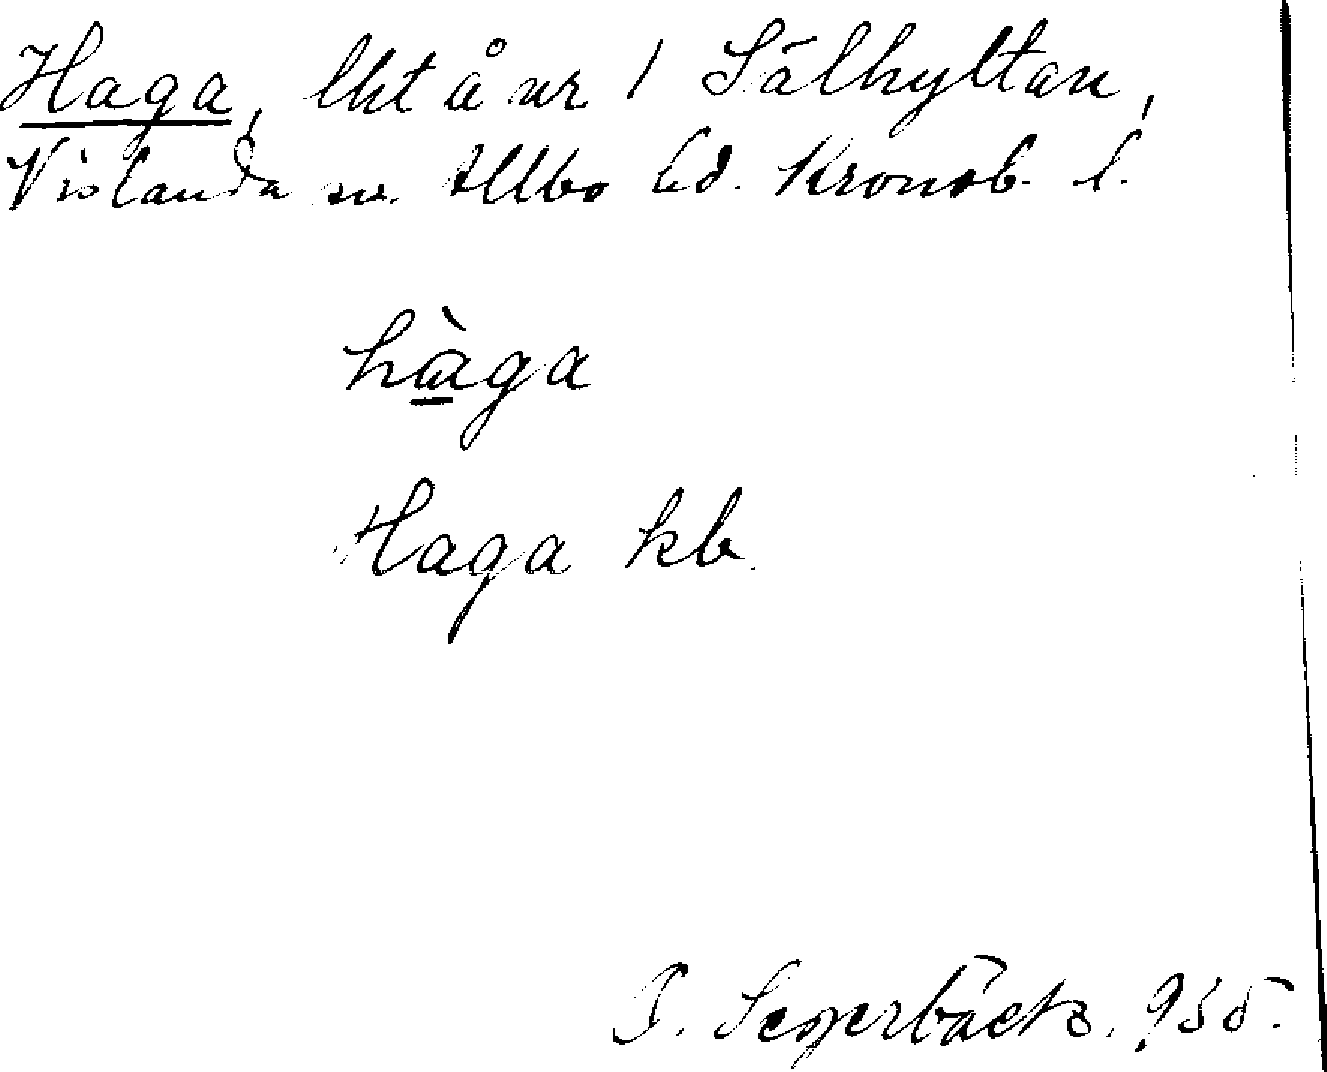 Haga, lht å nr 1 Sälhyltan,
Vislanda sn. Allbo hd. Kronob. l.
hàga
Haga kb.
Segerbäck 935.